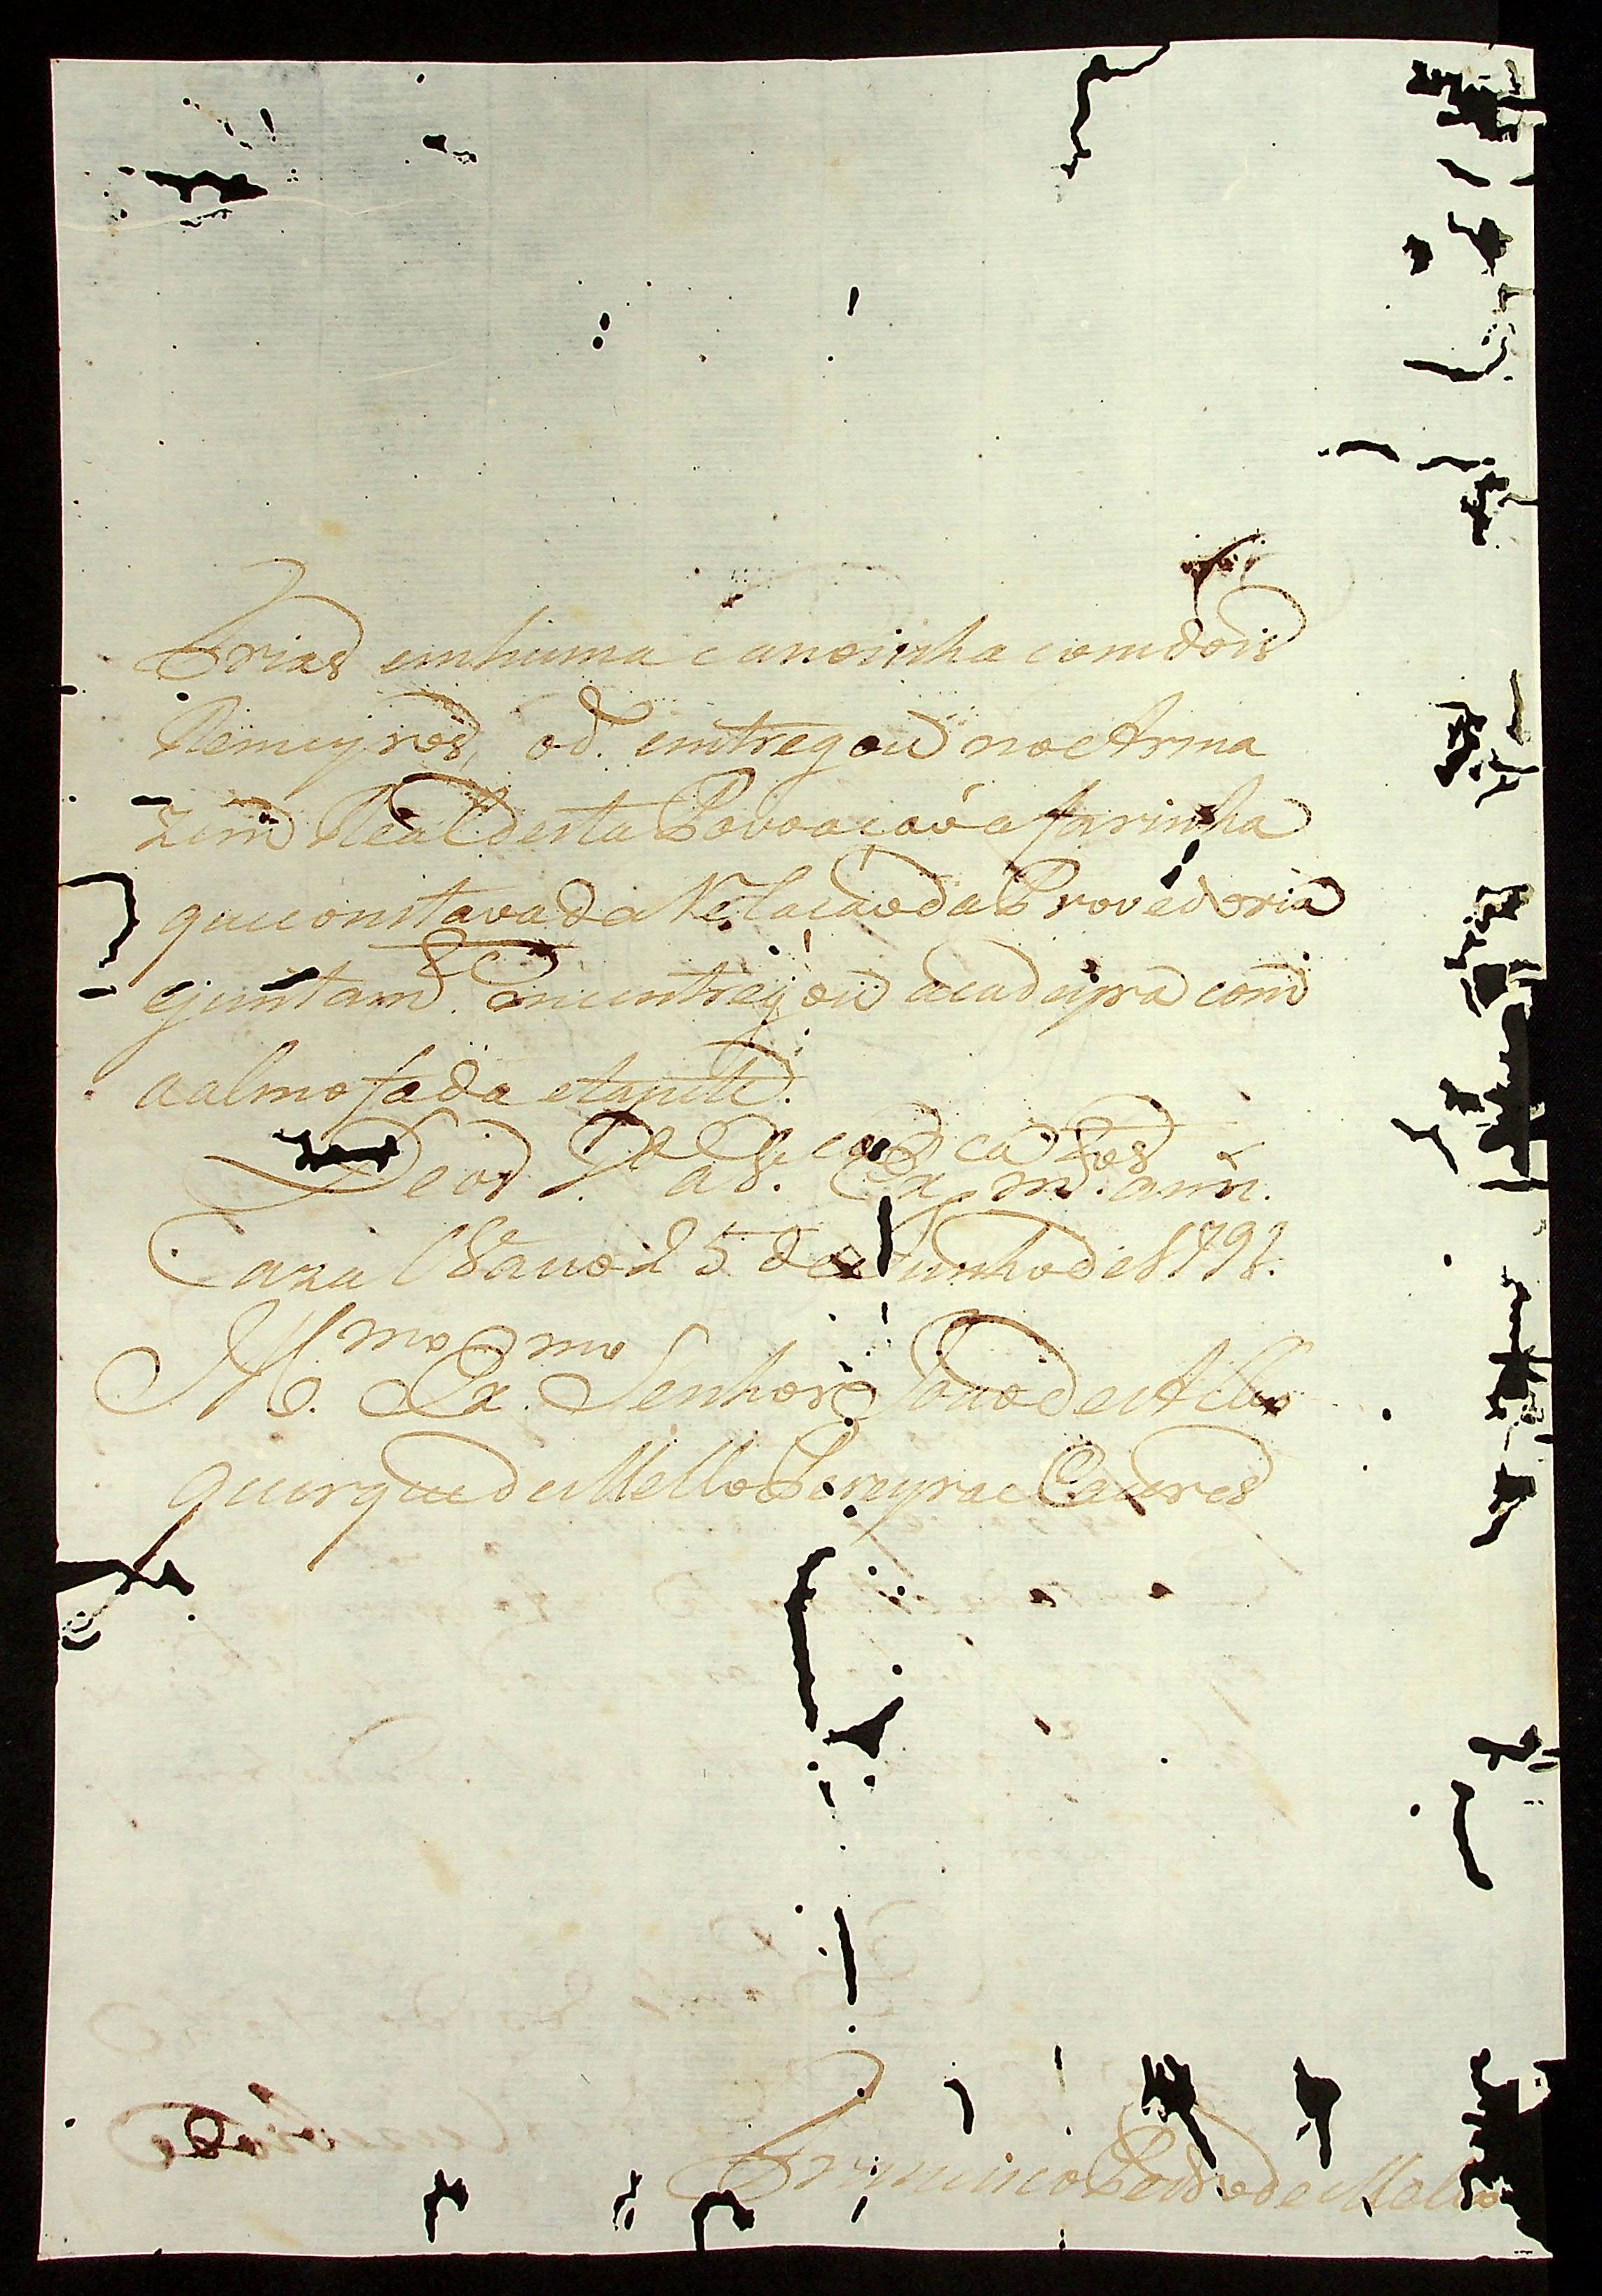 Frias emhuma canoinha comdois
Remeyros, oq. entregou noArma
zem Real desta Povoaçaõ a farinha
queconstavada Relaçaõda Provedoria
ejuntam.te meentregou acadeyra com
aalmofada etapete.
Deos g.de a V. Ex.ca m.s an.
Cazal Vasco 25 de Junhode1791.
Ill.mo Ex.mo Senhor Joaõ de Albu
querquedeMello Pereyrae Caceres
Francisco Pedro de Mello